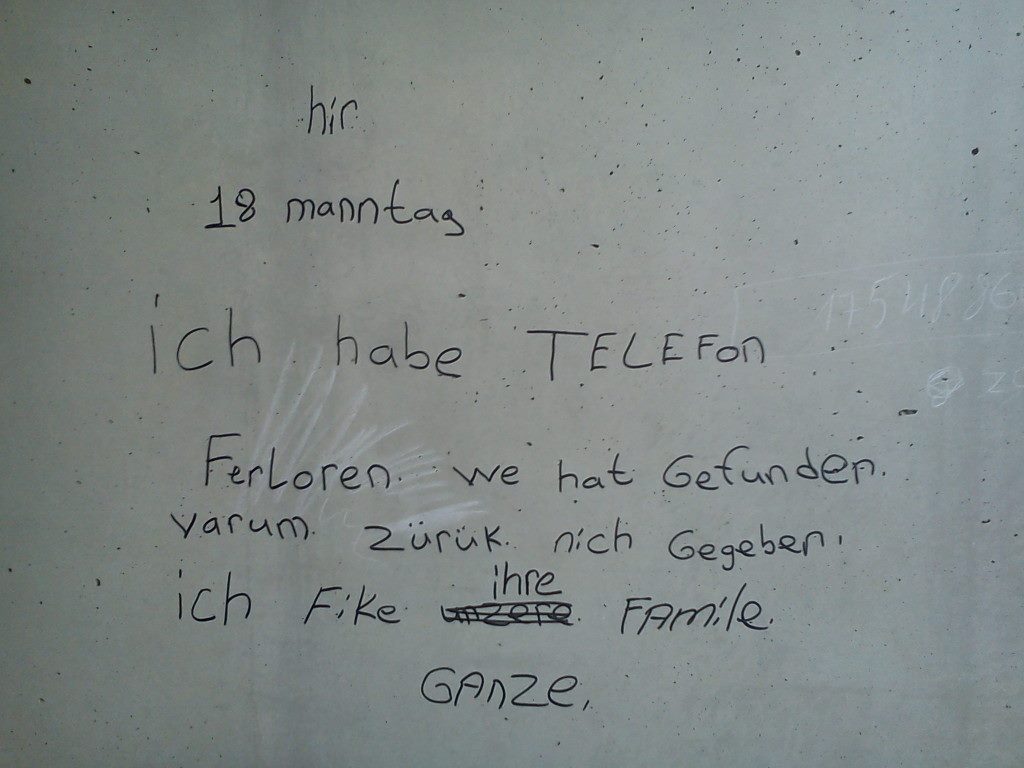 hir
18 manntag
ich habe TELEFon
FerLoren. we hat Gefunden.
varum. zürük. nich Gegeben.
ich Fike ihre FAmile.
GAnze,